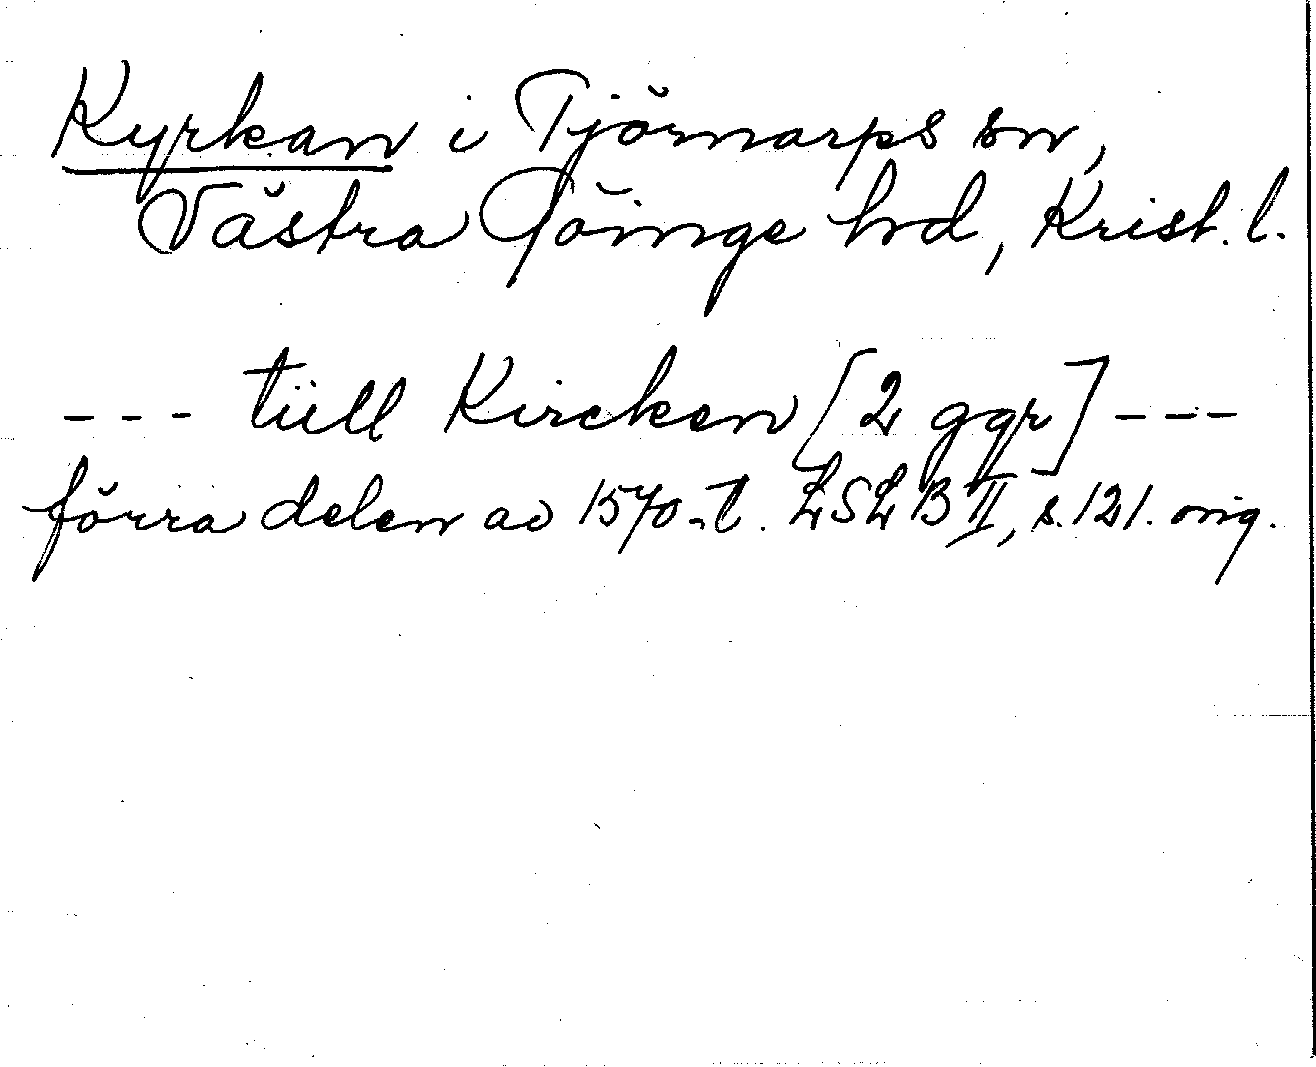 Kyrkan i Tjörnarps sn,
Västra Göinge hd, Krist. l.
--- tiill Kircken [2 ggr] ---
förra delen av 1570-t. LSLB II, s. 121. orig.